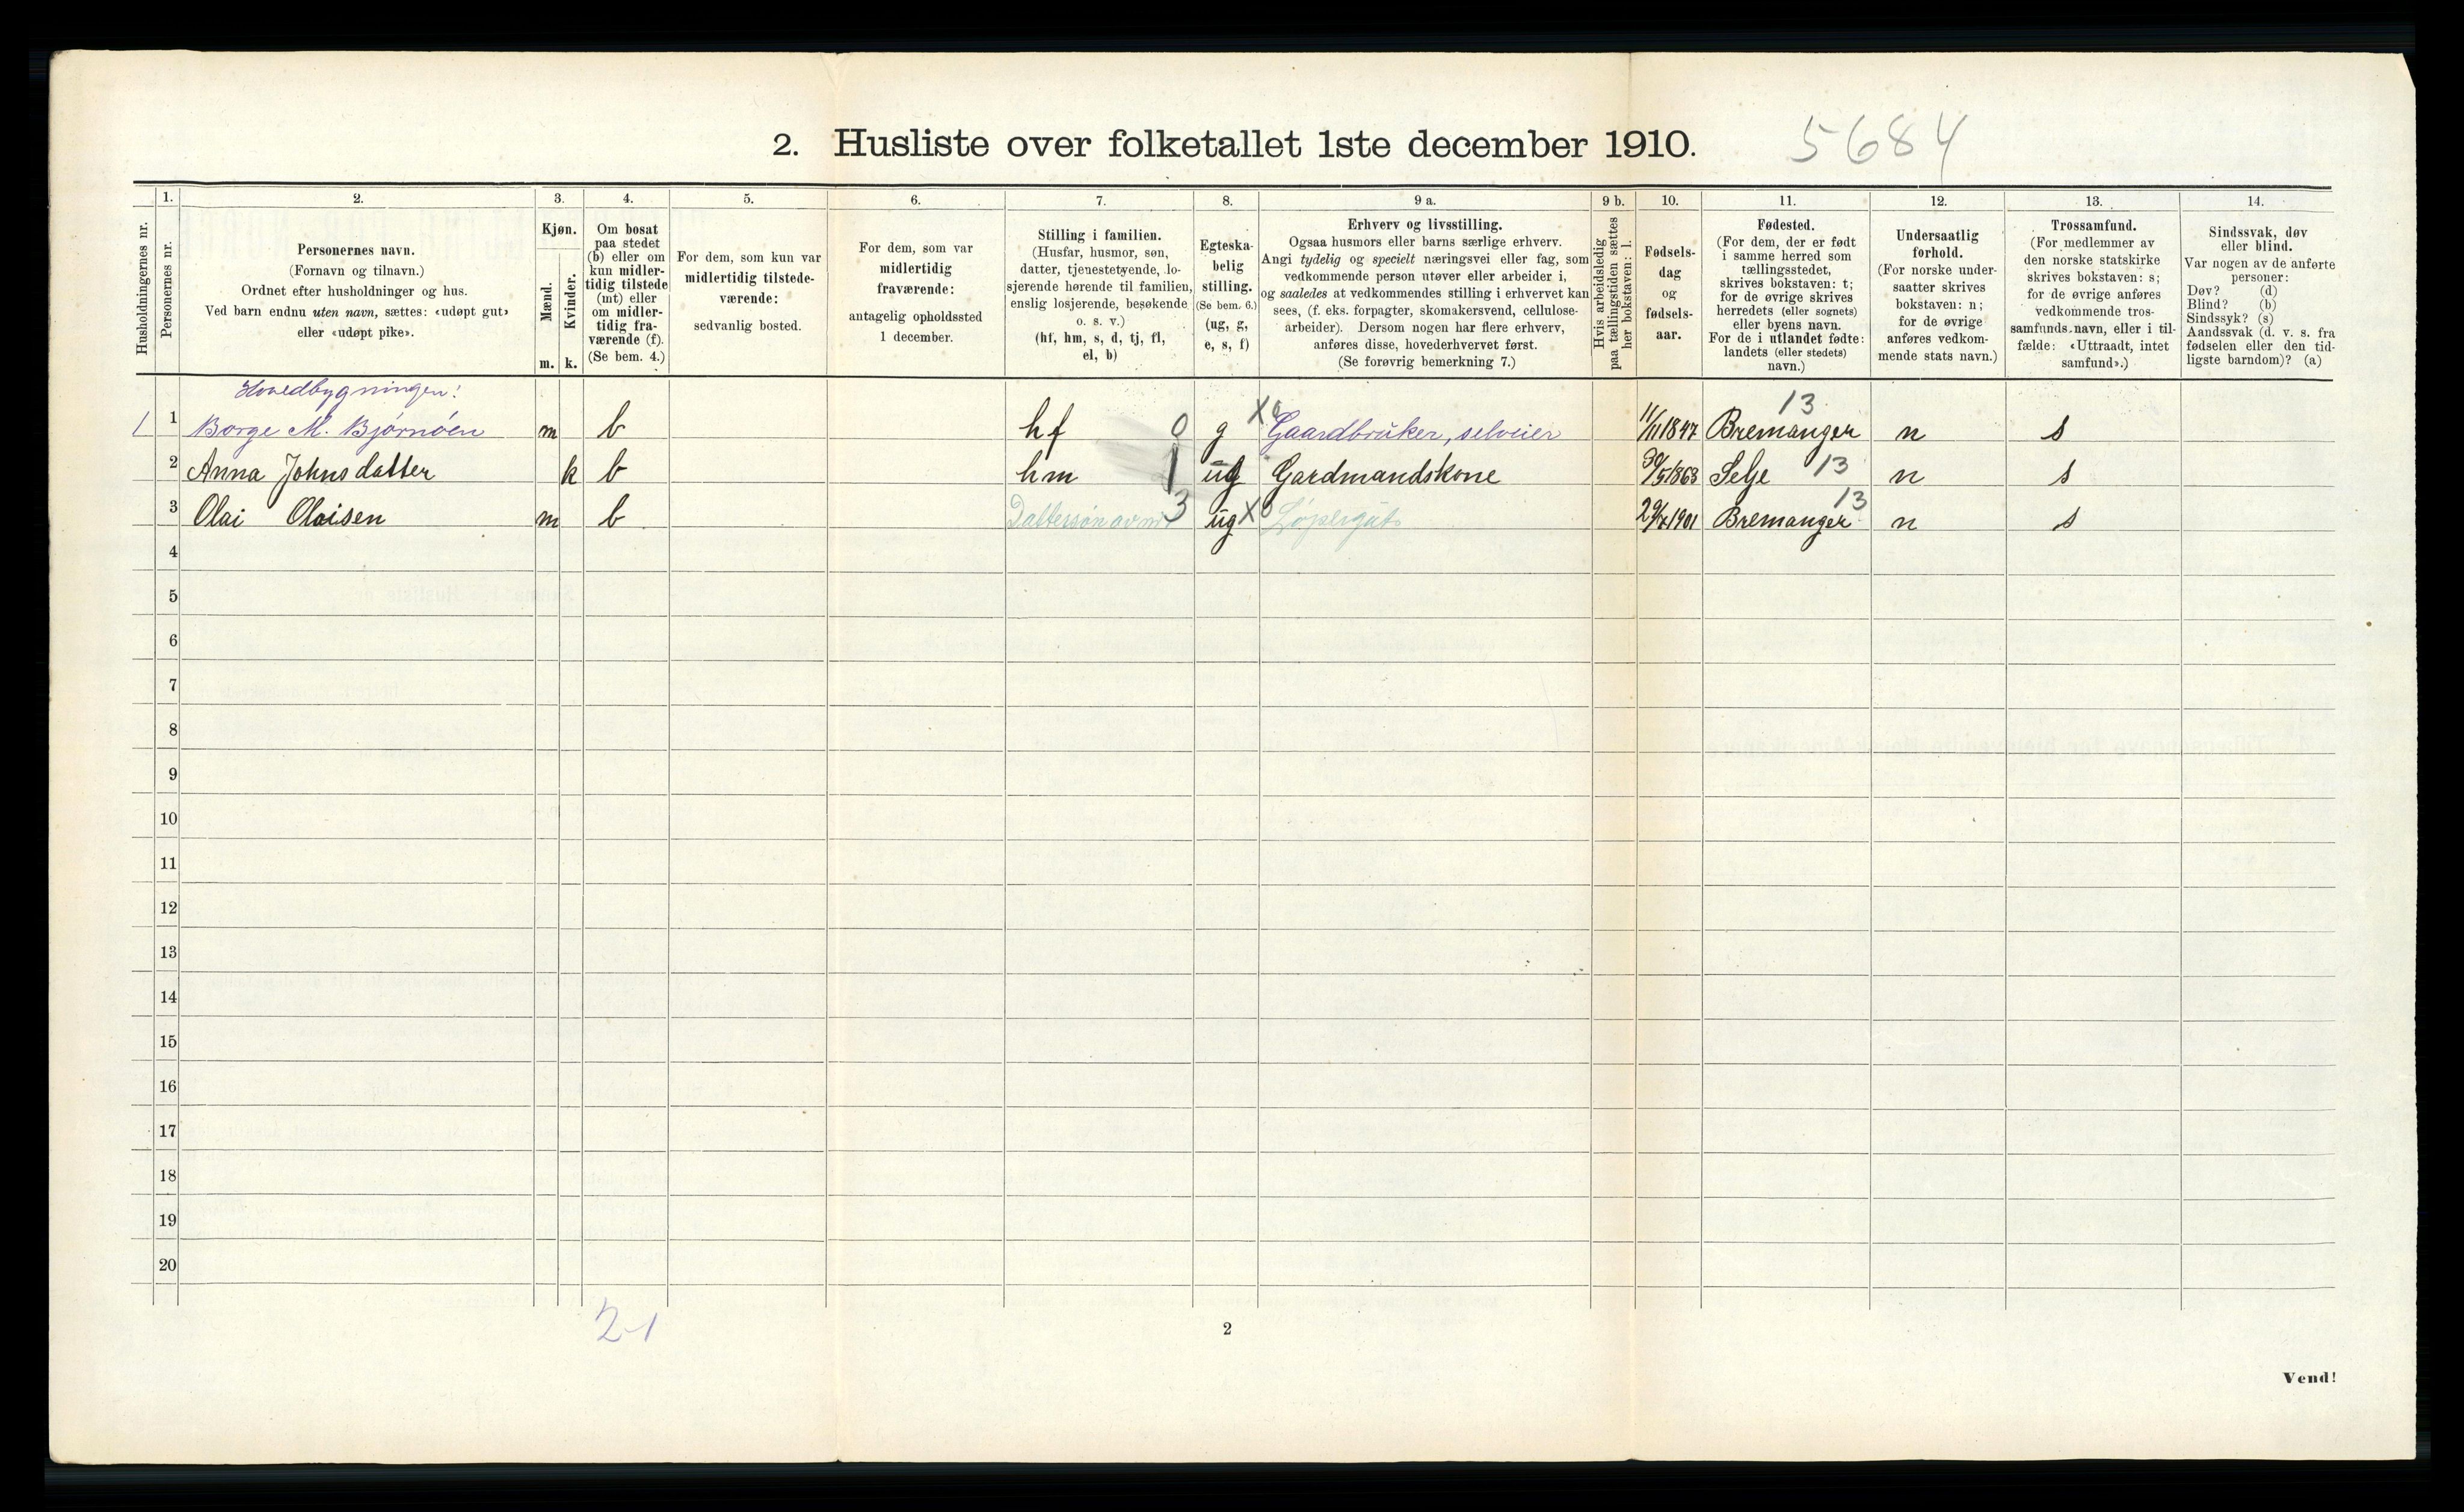 2. Husliste over folketallet 1ste december 1910. 5684
Husholdningernes nr.
1.
Personernes nr.
2.
Personernes navn.
(Fornavn og tilnavn.)
Ordnet efter husholdninger og hus.
Ved barn endnu uten navn, sættes: «udøpt gut»
eller «udøpt pike».
3.
Kjøn.
Mænd.
Kvinder.
m. k.
4.
Om bosat
paa stedet
(b) eller om
kun midler-
tidig tilstede
(mt) eller
om midler-
tidig fra-
værende (f).
(Se bem. 4.)
5.
For dem, som kun var
midlertidig tilstede-
værende:
sedvanlig bosted.
6.
For dem, som var
midlertidig
fraværende:
antagelig opholdssted
1 december.
7.
Stilling i familien.
(Husfar, husmor, søn,
datter, tjenestetyende, lo-
sjerende hørende til familien,
enslig losjerende, besøkende
o. s. v.)
(hf, hm, s, d, tj, fl,
el, b)
8.
Egteska-
belig
stilling.
(Se bem. 6.)
(ug, g,
e, s, f)
9 a.
Erhverv og livsstilling.
Ogsaa husmors eller barns særlige erhverv.
Angi tydelig og specielt næringsvei eller fag, som
vedkommende person utøver eller arbeider i,
og saaledes at vedkommendes stilling i erhvervet kan
sees, (f. eks. forpagter, skomakersvend, cellulose-
arbeider). Dersom nogen har flere erhverv,
anføres disse, hovederhvervet først.
(Se forøvrig bemerkning 7.)
9 b.
Hvis arbeidsledig
paa tællingstiden sættes
her bokstaven: l.
10.
Fødsels-
dag
og
fødsels-
aar.
11.
Fødested.
(For dem, der er født
i samme herred som
tællingsstedet,
skrives bokstaven: t;
for de øvrige skrives
herredets (eller sognets)
eller byens navn.
For de i utlandet fødte:
landets (eller stedets)
navn.)
12.
Undersaatlig
forhold.
(For norske under-
saatter skrives
bokstaven: n;
for de øvrige
anføres vedkom-
mende stats navn.)
13.
Trossamfund.
(For medlemmer av
den norske statskirke
skrives bokstaven: s;
for de øvrige anføres
vedkommende tros-
samfunds navn, eller i til-
fælde: «Uttraadt, intet
samfund».)
14.
Sindssvak, døv
eller blind.
Var nogen av de anførte
personer:
Døv? (d)
Blind? (b)
Sindssyk? (s)
Aandssvak (d. v. s. fra
fødselen eller den tid-
ligste barndom)? (a)
Hovedbygningen: 13
1 1 Børge M. Bjørnöen m b hf 0 g X0 Gaardbruker, selveier 11/11 1847 Bremanger n s
2 Anna Johnsdatter k b hm 1 ug Gardmandskone 30/5 1863 Selje 13 n s
3 Olai Olaisen m b Dattersön av 3 ug X0 Løpergut 1901 Bremanger 13 n s
4
5
6
7
8
9
10
11
12
13
14
15
16
17
18
19
20
2-1
2
Vend!